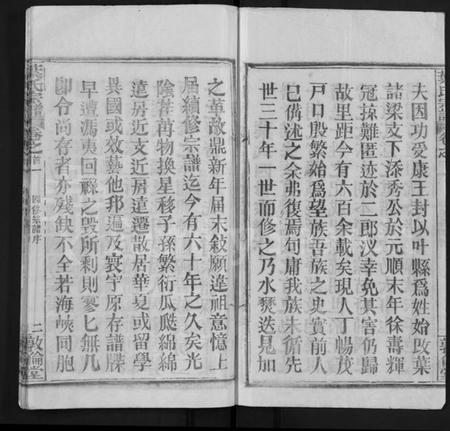 夫因功爱康王封以叶縣爲姓始改葉
諸梁支下添秀公於元順末年徐壽輝
冦掠難匿迹於二郎汊幸免其害仍歸
故里距今有六百余載矣現人丁暢茂
戸口殷繁始爲望族吾族之史實前人
已備述之余弗復焉句庸我族未循先
世三十年一世而修之乃水燹迭見加
之革故鼎新年届末敍願違祖意憶上
届續修宗譜迄今有六十年之久矣光
陰荏苒物換星移子孫繁衍瓜瓞綿綿
遠房近支近居遠遷散居華夏或留學
異國或效藝他邦遍及寰宇原存譜牒
早遭馮夷回祿之毀所剩則寥匕無几
卽令尚存者亦殘缺不全若海峽同胞
葉氏宗譜 卷之首一
四修宗譜序
二敦倫堂